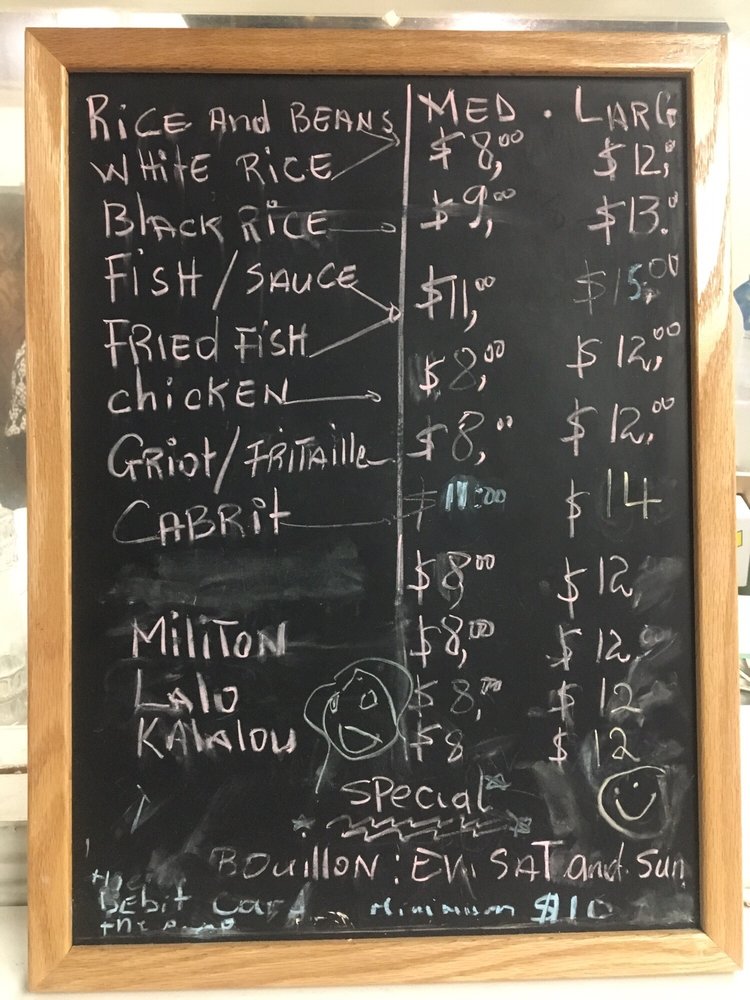 MED . LARG
RiCE And BEANS $8,00 $12,0
WHITE RiCE
BLACK RiCE $9,00 $13.0
FiSH/SAUCE $11,00 $15.00
FRiEd FiSH
chicKEN $8,00 $12,00
GRiot/FRiTAille $8,00 $12,00
CABRit $11:00 $14
$8,00 $12
MiliTON $8,00 $12
LAlo $8,00 $12
KAlAlou $8 $12
SPecial
BOuillON : EVi SAT and Sun
DEbit CARd Minimum $10